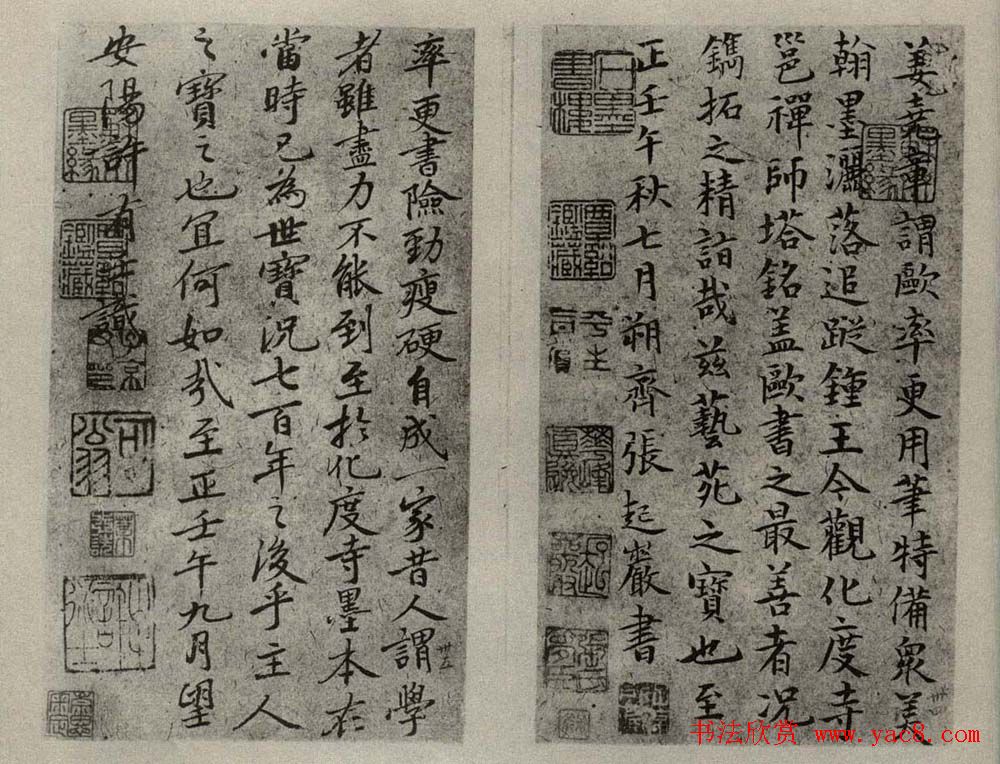 姜堯章謂歐率更用筆特備衆美
翰墨灑落追蹤鍾王今觀化度寺
邕禪師塔銘盖歐書之最善者況
鐫拓之精詣哉兹藝苑之寶也至
正壬午秋七月朔齊張起巖書
率更書險勁瘦硬自成一家昔人謂學
者雖盡力不能到至於化度寺墨本在
當時已為世寶況七百年之後乎主人
之寶之也宜何如哉至正壬午九月望
安陽許有壬識
墨緣
墨緣
鑑藏
鑑藏
书法欣赏 www.yac8.com